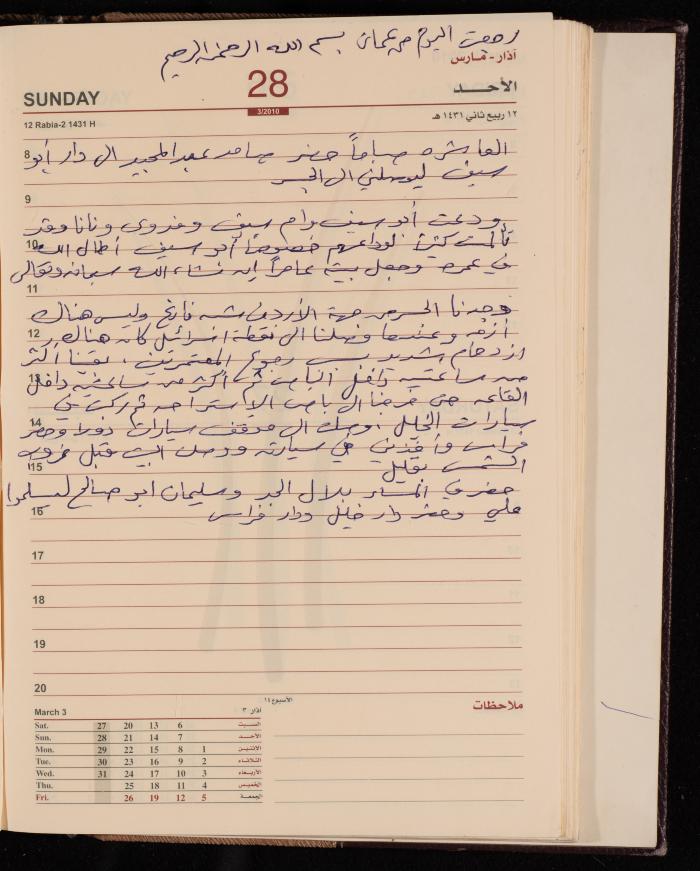 رجعت اليوم من عمان بسم الله الرحمن الرحيم
آذار - مارس
SUNDAY 28 الأحــد
3/2010
12 Rabia-2 1431 H ١٢ ربيع ثاني ١٤٣١ هـ
8 العاشره صباحاً حضر حامد عبد المجيد الى دار أبو
سيف ليوصلني الى الجسر
9
ودعت أبو سيف وام سيف وفدوى ونانا وقد
10 تألمت كثيراً لوداعهم خصوصاً أبو سيف أطال الله
في عمره وجعل بيته عامراً إن شاء الله سبحانه وتعالى
11
وجدنا الجسر من جهة الأردن شبه فارغ وليس هناك
12 أزمه وعندما وصلنا الى نقطة اسرائيل كان هناك
ازدحام شديد بسبب رجوع المعتمرين، بقينا أكثر
13 من ساعتين داخل الباص ثم أكثر من ساعتين داخل
القاعه حتى خرجنا الى باص الاستراحه ثم ركبت في
14 سيارات الخليل أوصلت الى موقف سيارات دورا وحضر
فراس وأخذني في سيارته ووصلت البيت قبل غروب
15 الشمس بقليل
حضر في المساء بلال الجد وسليمان ابو صالح ليسلموا
16 علي وحضر دار خليل ودار فراس
17
18
19
20
March 3 آذار ٣ الأسبوع ١٤ ملاحظات
Sat. 27 20 13 6 السبت
Sun. 28 21 14 7 الأحد
Mon. 29 22 15 8 1 الاثنين
Tue. 30 23 16 9 2 الثلاثاء
Wed. 31 24 17 10 3 الأربعاء
Thu. 25 18 11 4 الخميس
Fri. 26 19 12 5 الجمعة